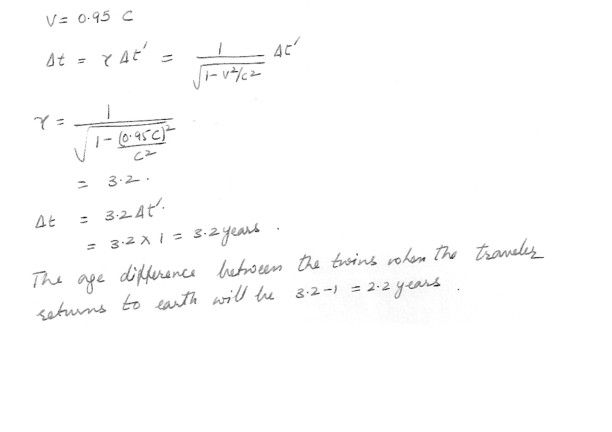 V = 0.95 C
Δt = γ Δt' = 1/√(1-v²/c²) Δt'
γ = 1/√(1-(0.95C)²/C²)
= 3.2.
Δt = 3.2 Δt'.
= 3.2 x 1 = 3.2 years.
The age difference between the twins when the traveler
returns to earth will be 3.2-1 = 2.2 years.